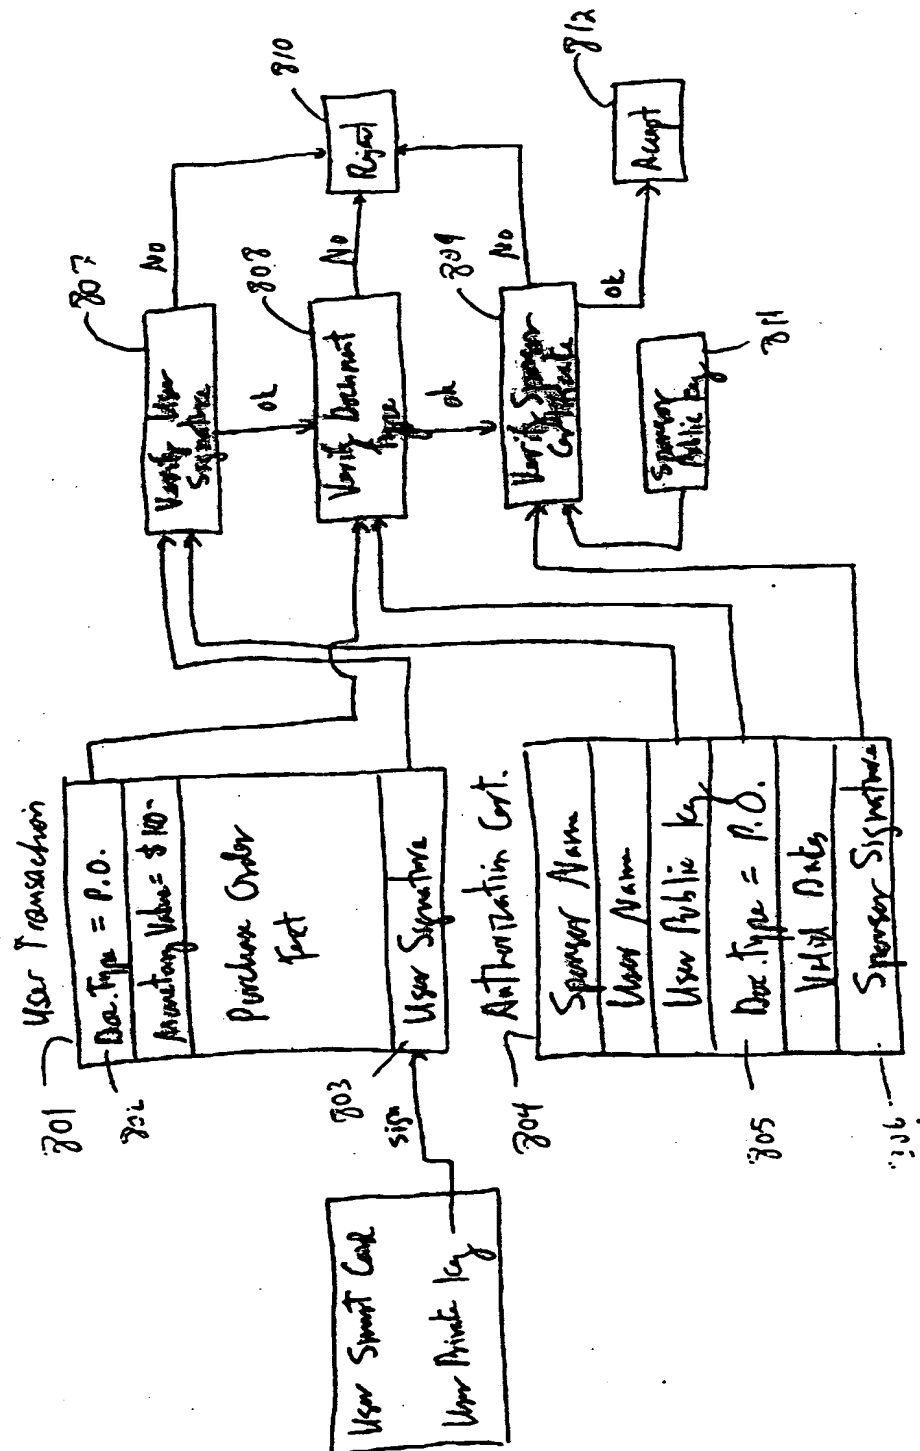 User Smart Card
User Private Key
sign
801
User Transaction
802
Doc. Type = P.O.
Monetary Value = $ 10-
Purchase Order
Text
803
User Signature
804
Authorization Cert.
Sponsor Name
User Name
User Public Key
805
Doc. Type = P.O.
Valid Dates
Sponsor Signature
807
Verify User
Signature
No
OK
808
Verify Document
Type
No
OK
809
Verify Sponsor
Certificate
No
OK
810
Reject
Sponsor
Public Key
811
812
Accept